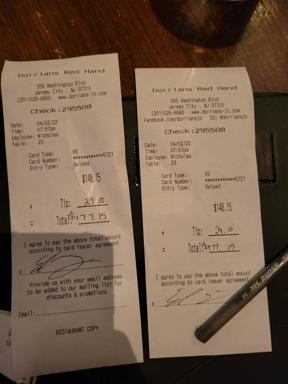 Dorrians Red Hand
555 Washington Blvd
Jersey City , NJ 07310
(201)626-6660 www.dorrians-jc.com
Check:295508
Date: 04/02/22
Time: 07:57pm
Employee: Nicholas
Table: 23
Card Type: VS
Card Number: ************5721
Entry Type: Swiped
$148.15
+ Tip: 29.00
= Total: $177.15
I agree to pay the above total amount
according to card issuer agreement
x
Provide us with your email address
to be added to our mailing list for
discounts & promotions
Email:
RESTAURANT COPY
Dorrians Red Hand
555 Washington Blvd
Jersey City , NJ 07310
(201)626-6660 www.dorrians-jc.com
Facebook.com/dorriansjc IG: @dorriansjc
Check:295508
Date: 04/02/22
Time: 07:57pm
Employee: Nicholas
Table: 23
Card Type: VS
Card Number: ************5721
Entry Type: Swiped
$148.15
+ Tip: 29.0
= Total: $177.15
I agree to pay the above total amount
according to card issuer agreement
x